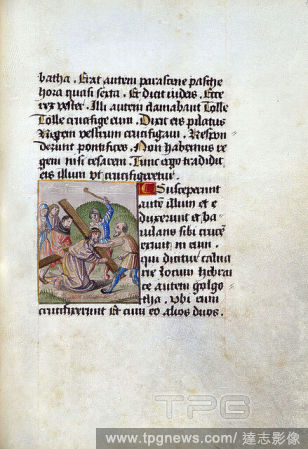 batha. Erat autem parasceue pasche
hora quasi sexta. Et dicit iudeis. Ecce
rex vester. Illi autem clamabant Tolle
Tolle crucifige eum. Dixit eis pilatus
Regem vestrum crucifigam. Respon
derunt pontifices. Non habemus re
gem nisi cesarem. Tunc ergo tradidit
eis illum vt crucifigeretur.
Susceperunt
autem illum et e
duxerunt et ba
iulans sibi cruce
exiuit in eum.
qui dicitur calua
rie locum hebrai
ce autem golgo
tha. Vbi eum
crucifixerunt Et cum eo alios duos.
TPG
www.tpgnews.com/ 達志影像